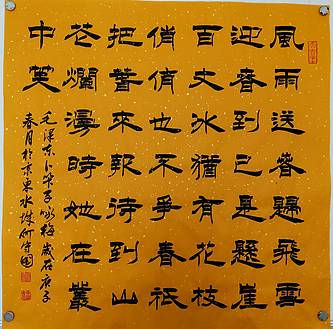 風雨送春歸飛雪
迎春到已是懸崖
百丈冰猶有花枝
俏俏也不爭春祗
把春來報待到山
花爛漫時她在叢
中笑
毛澤東卜算子咏梅歲在庚子
春月於京東水城何